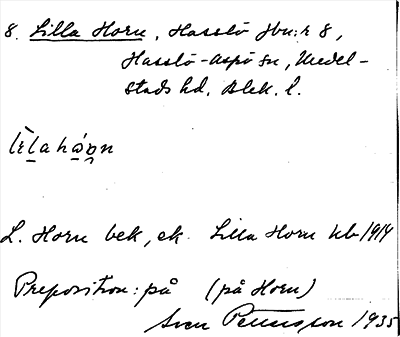 8. Lilla Horn, Hasslö Jbn:r 8,
Hasslö-Aspö sn, Medel-
stads hd. Blek. l.
lìlahán
L. Horn bek, ek. Lilla Horn kb 1914
Preposition: på (på Horn)
Sven Pettersson 1935